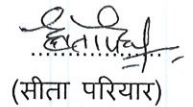 (सीता परियार)